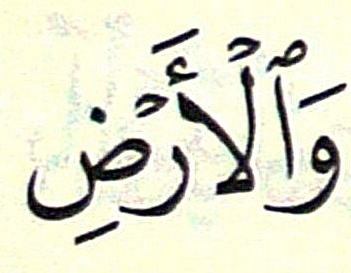 وَٱلْأَرْضِ